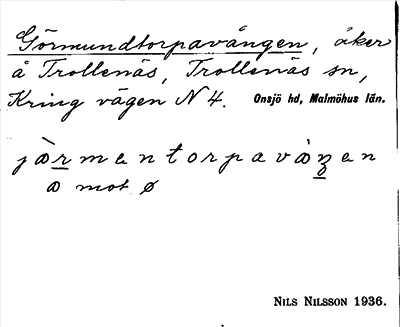 Görmundtorpavången, åker
å Trollenäs, Trollenäs sn,
Kring vägen N 4. Onsjö hd, Malmöhus län.
jàrmentorpavàŋen
a mot ø
NILS NILSSON 1936.